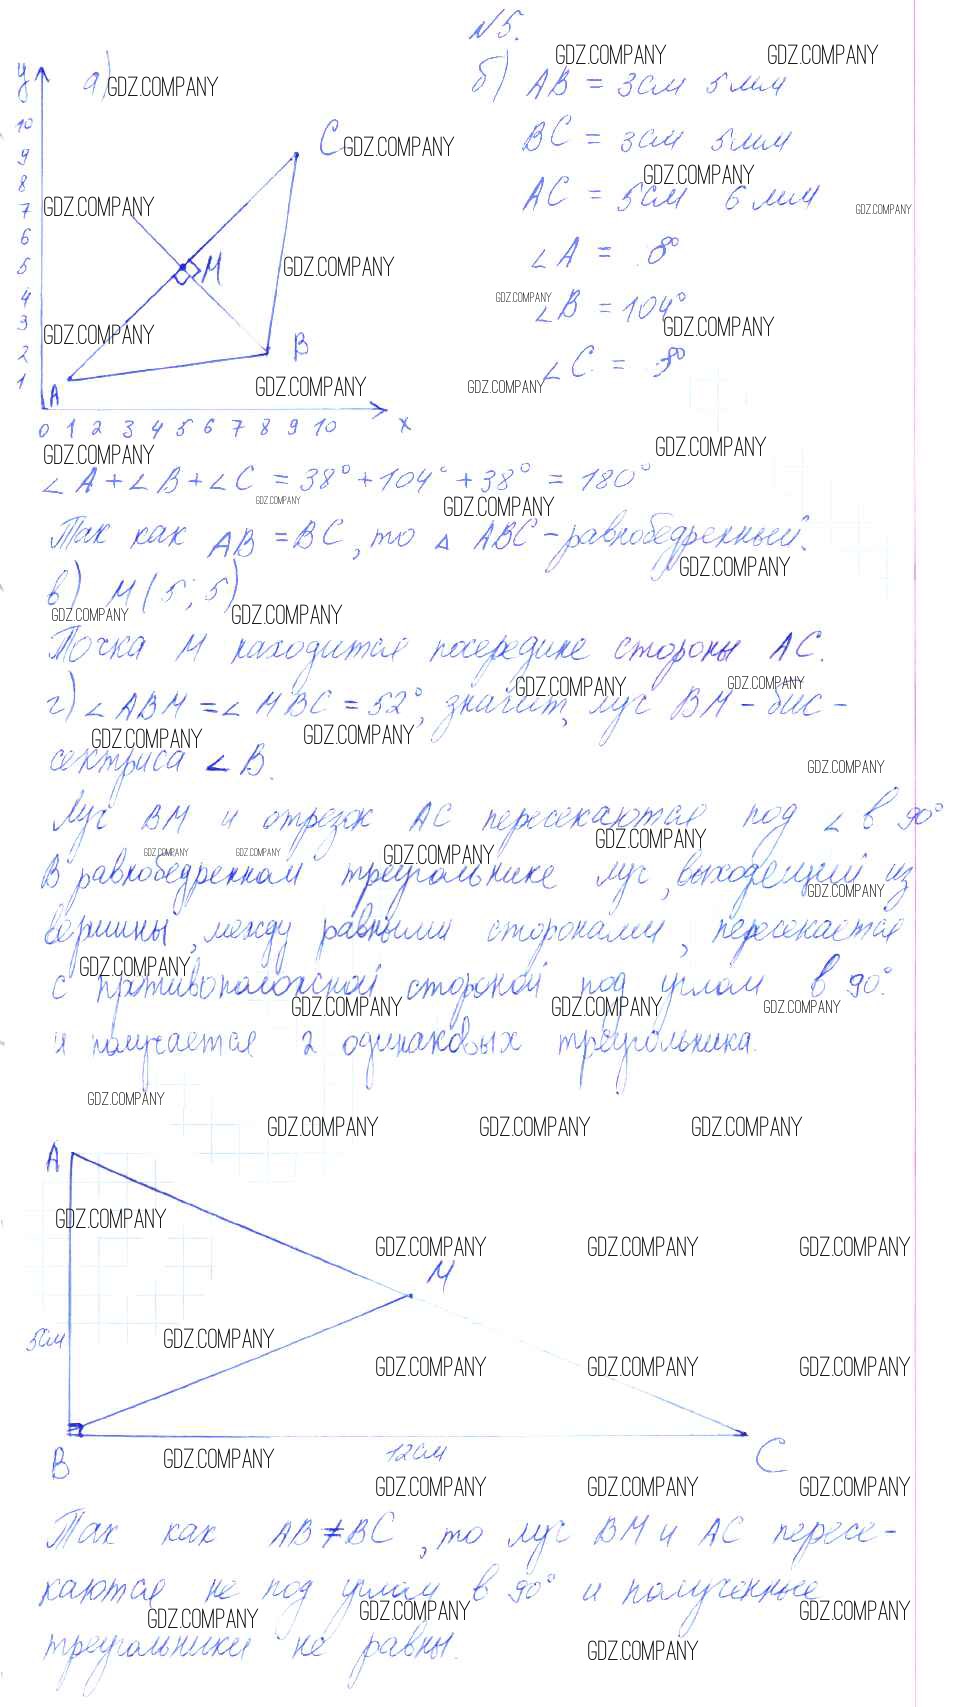 №5.
а)
у
10
9
8
7
6
5
4
3
2
1
0 1 2 3 4 5 6 7 8 9 10 х
A
B
C
M
б) AB = 3см 5мм
BC = 3см 5мм
AC = 5см 6мм
∠A = 8°
∠B = 104°
∠C = 8°
∠A + ∠B + ∠C = 38° + 104° + 38° = 180°
Так как AB = BC, то △ ABC - равнобедренный.
в) M (5; 5)
Точка M находится посередине стороны AC.
г) ∠ABM = ∠MBC = 52°, значит, луч BM - бис-
сектриса ∠B.
Луч BM и отрезок AC пересекаются под ∠ в 90°
В равнобедренном треугольнике луч, выходящий из
вершины, между равными сторонами, пересекается
с противоположной стороной под углом в 90°.
и получается 2 одинаковых треугольника.
A
M
5см
B
12см
C
Так как AB ≠ BC, то луч BM и AC пересе-
каются не под углом в 90° и полученные
треугольники не равны.
GDZ.COMPANY